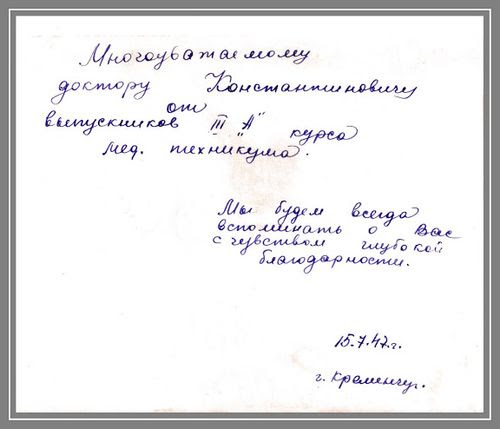 Многоуважаемому
доктору Константиновичу
от
выпускников III "А" курса
мед. техникума.
Мы будем всегда
вспоминать о Вас
с чувством глубокой
благодарности.
15.7.47.г.
г. Кременчуг.